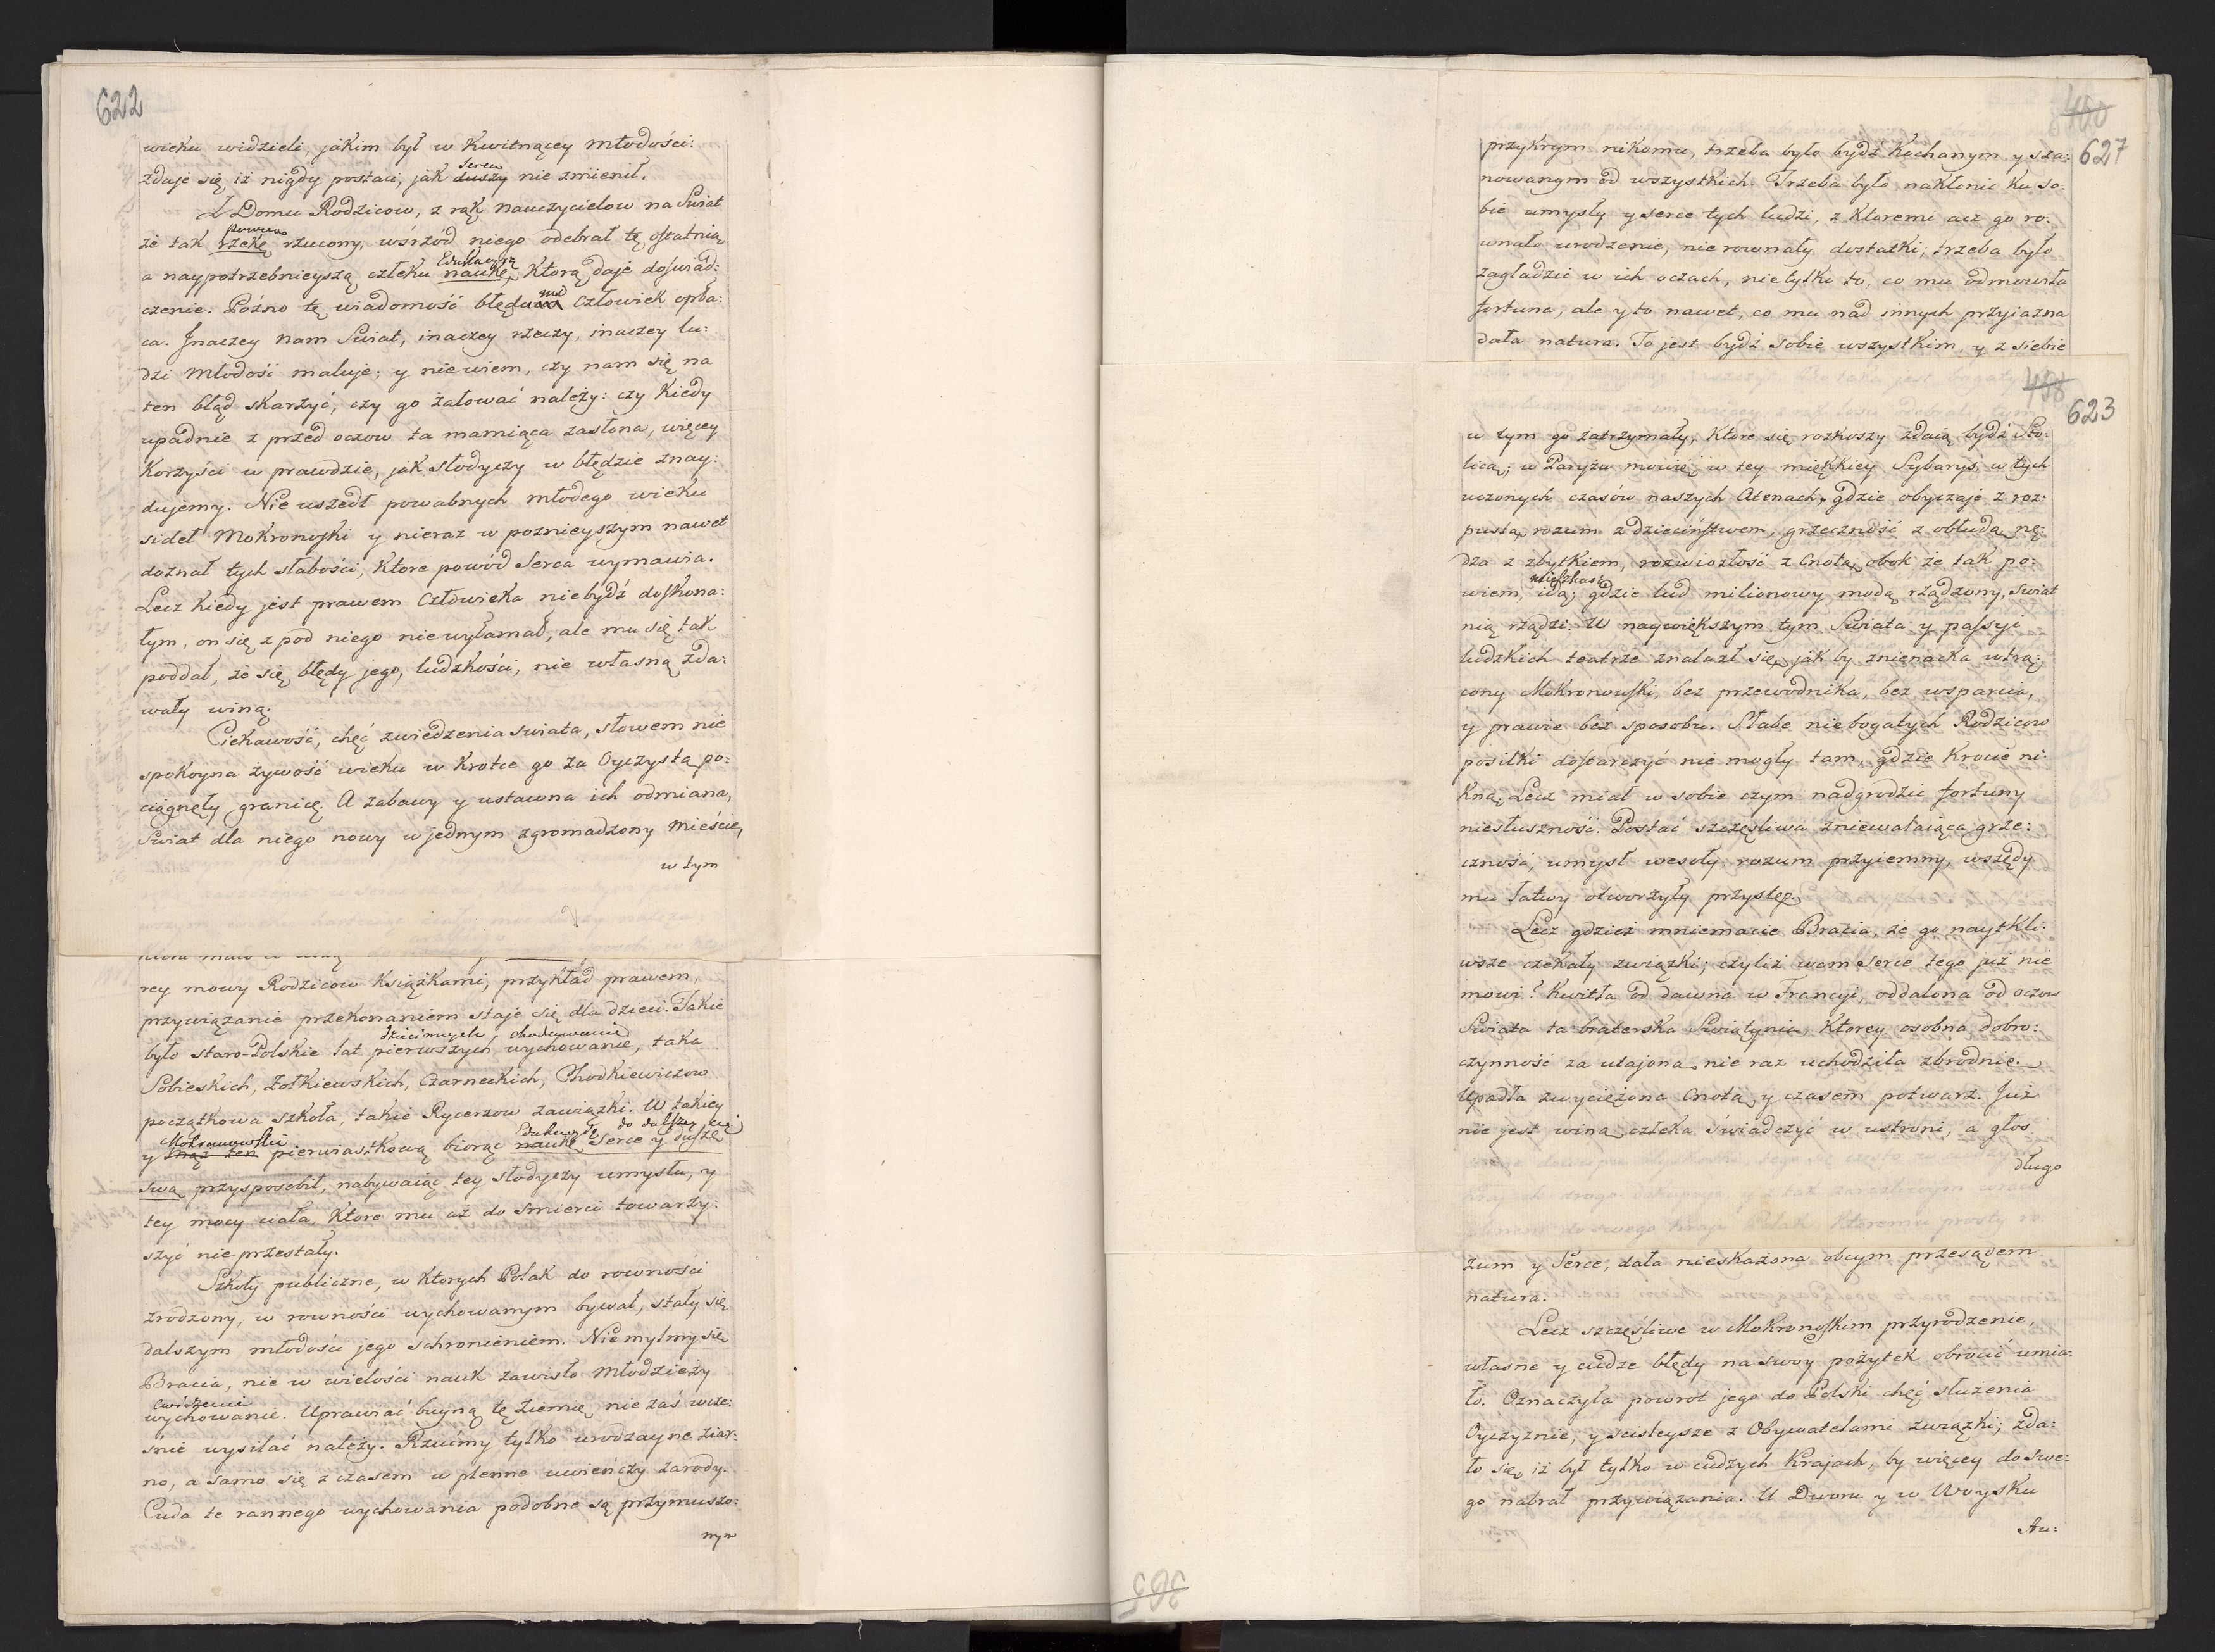 622
wieku widzieli, jakim był w kwitnącey młodości:
zdaje się, iż nigdy postaci, jak duszy nie zmienił.
serca
Z Domu Rodzicow, z rąk Nauczycielow na Swiat
że tak rzekę rzucony, wśrzód niego odebrał tę ostatnią
powiem
a naypotrzebnieyszą człeku naukę, którą daje doświad:
Edukacyją
czenie. Poźno tę wiadomość błędu człowiek opła:
ca. Jnaczey nam Swiat, inaczey rzeczy, inaczey lu:
dzi młodość maluje; y nie wiem, czy nam się na
ten błąd skarżyć, czy go żałować należy: czy kiedy
upadnie z przed oczow ta mamiąca zasłona, więcey
korzyści w prawdzie, jak słodyczy w błędzie znay:
dujemy. Nie uszedł powabnych młodego wieku
sideł Mokronoski y nieraz w poznieyszym nawet
doznał tych słabości, ktore powód serca wymawia.
Lecz kiedy jest prawem człowieka niebydź doskona:
łym, on się z pod niego nie wyłamał, ale mu się tak
poddał, że się błędy jego, ludzkości, nie własną zda:
wały winą.
Ciekawość, chęć zwiedzenia swiata, słowem nie
spokoyna żywość wieku w krotce go za Oyczystą po:
ciągnęły granicę. A zabawy y ustawna ich odmiana,
Swiat dla niego nowy w jednym zgromadzony mieście,
w tym
rey mowy Rodzicow książkami, przykład prawem,
przywiązanie przekonaniem staje się dla dzieci. Takie
było staro-Polskie lat pierwszych wychowanie, taka
dziecinnych, chodowanie
Sobieskich, Żołkiewskich, Czarneckich, Chodkiewiczow
początkowa szkoła, takie Rycerzow zawiązki. W takiey
y mąż ten pierwiastkową biorąc naukę serce y duszę
Mokronowski
do dalszey
swą przysposobił, nabywaiąc tey słodyczy umysłu, y
tey mocy ciała, ktore mu aż do smierci towarzy:
szyć nie przestały.
Szkoły publiczne, w ktorych Polak do rowności
zrodzony, w rowności wychowanym bywał, stały się
dalszym młodości jego schronieniem. Nie mylmy się
Bracia, nie w wielości nauk zawisło Młodzieży
wychowanie. Uprawiać buyną tę ziemię, nie zaś wcze:
cwiczenie
śnie wysilać należy. Rzućmy tylko urodzayne ziar:
no, a samo się z czasem w plenne uwieńczy zarody.
Cuda te rannego wychowania podobne są przymuszo:
nym
460
627
przykrym nikomu, trzeba było bydź kochanym y sza:
nowanym od wszystkich. Trzeba było nakłonić ku so:
bie umysły y serce tych ludzi, z ktoremi acz go ro:
wnało urodzenie, nie rownały dostatki; trzeba było
zagładzić w ich oczach, nie tylko to, co mu odmowiła
fortuna, ale y to nawet, co mu nad innych przyiazna
dała natura. To jest bydź sobie wszystkim, y z siebie
458
623
w tym go zatrzymały, ktore się rozkoszy zdaią bydź Sto:
licą; w Paryżu mowię w tey miękkiey Sybarys, w tych
uczonych czasów naszych Atenach, gdzie obyczaje z roz:
pustą, rozum z dziecińſtwem, grzeczność z obłudą, nę:
dza z zbytkiem, rozwiozłość z Cnotą, obok że tak po:
wiem, idą; gdzie lud milionowy modą rządzony, swiat
mieszkaią
nią rządzi. W naywiększym tym Swiata y passyi
ludzkich teatrze znalazł się, jak by znienacka wtrą:
cony Mokronowski, bez przewodnika, bez wsparcia,
y prawie bez sposobu. Słabe niebogatych Rodzicow
posiłki dostarczyć nie mogły tam, gdzie krocie ni:
kną. Lecz miał w sobie czym nadgrodzić fortuny
niesłuszność. Postać szczęśliwa zniewalaiąca grze:
czność, umysł wesoły, rozum przyiemny, wszędy
mu łatwy otworzyły przystęp.
Lecz gdzież mniemacie Bracia, że go naytkli:
wsze czekały związki; czyliż wam serce tego już nie
mowi? Kwitła od dawna w Francyi, oddalona od oczow
Swiata ta braterska Swiątynia, ktorey osobna dobro:
czynność za utajoną nie raz uchodziła zbrodnię.
Upadła zwyciężona Cnotą, y czasem potwarz. Już
nie jest winą człeka świadczyć w ustroni, a głos
długo
zum y Serce, dała nieskażona obcym przesądem
natura.
Lecz szczęśliwe w Mokronoskim przyrodzenie,
własne y cudze błędy na swoy pożytek obrocić umia:
ło. Oznaczyła powrot jego do Polski chęć służenia
Oyczyznie, y scisleysze z Obywatelami związki; zda:
ło się, iż był tylko w cudzych krajach, by więcey do swe:
go nabrał przywiązania. U Dworu y w Woysku
stu:
365